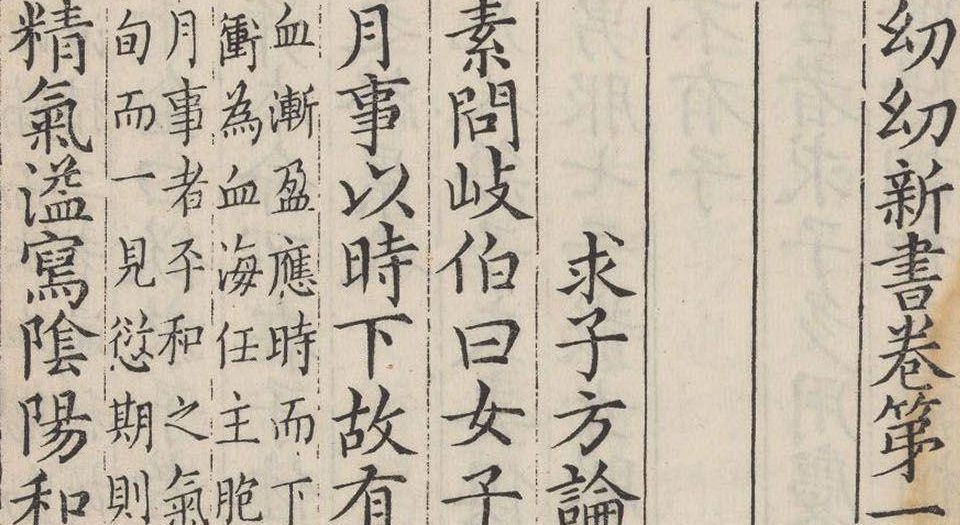 幼幼新書卷第一
求子方論
素問岐伯曰女子
月事以時下故有
血漸盈應時而下
衝為血海任主胞
月事者平和之氣
旬而一見愆期則
精氣溢寫隂陽和